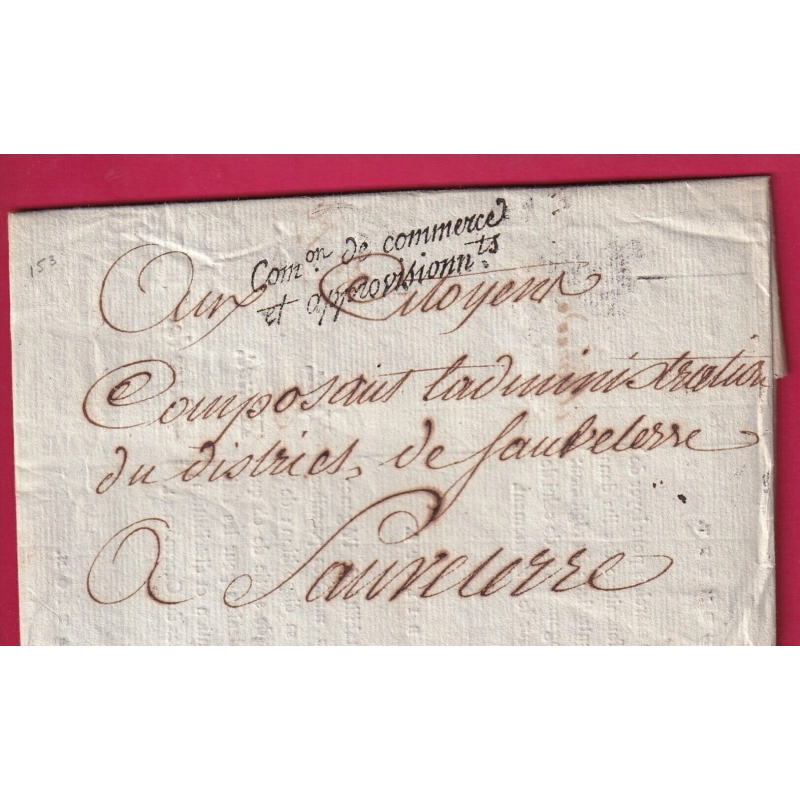 153
Com.on de commerce
et approvisionn.ts
Aux Citoyens
Composant l'administration
du district de Sauveterre
A Sauveterre